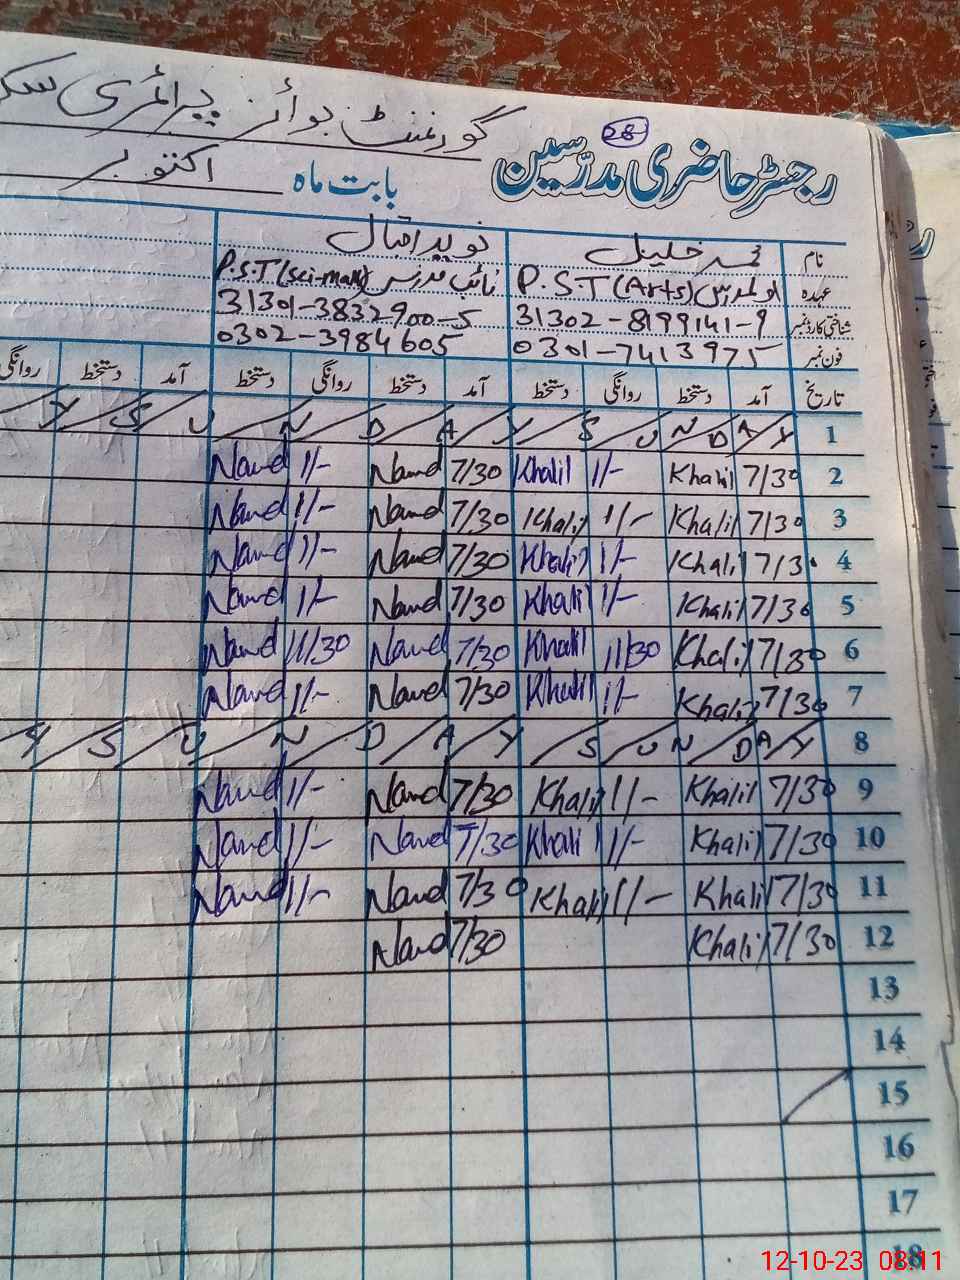 گورنمنٹ بوائز پرائمری سک
28
رجسٹر حاضری مدرّسین
بابت ماہ اکتوبر
نام محمد خلیل نوید اقبال
عہدہ اول مدرس P.S.T (Arts) نائب مدرس P.S.T (Sci-math)
شناختی کارڈ نمبر 31302-8199141-9 31301-3832900-5
فون نمبر 0301-7413975 0302-3984605
تاریخ آمد دستخط روانگی دستخط آمد دستخط روانگی دستخط آمد دستخط روانگی
Y S U N D A Y S U N D A Y 1
Navid 1/- Navid 7/30 Khalil 1/- Khalil 7/30 2
Navid 1/- Navid 7/30 Khalil 1/- Khalil 7/30 3
Navid 1/- Navid 7/30 Khalil 1/- Khalil 7/30 4
Navid 1/- Navid 7/30 Khalil 1/- Khalil 7/30 5
Navid 11/30 Navid 7/30 Khalil 11/30 Khalil 7/30 6
Navid 1/- Navid 7/30 Khalil 1/- Khalil 7/30 7
Y S U N D A Y S U N D A Y 8
Navid 1/- Navid 7/30 Khalil 1/- Khalil 7/30 9
Navid 1/- Navid 7/30 Khalil 1/- Khalil 7/30 10
Navid 1/- Navid 7/30 Khalil 1/- Khalil 7/30 11
Navid 7/30 Khalil 7/30 12
13
14
15
16
17
18
12-10-23 08:11